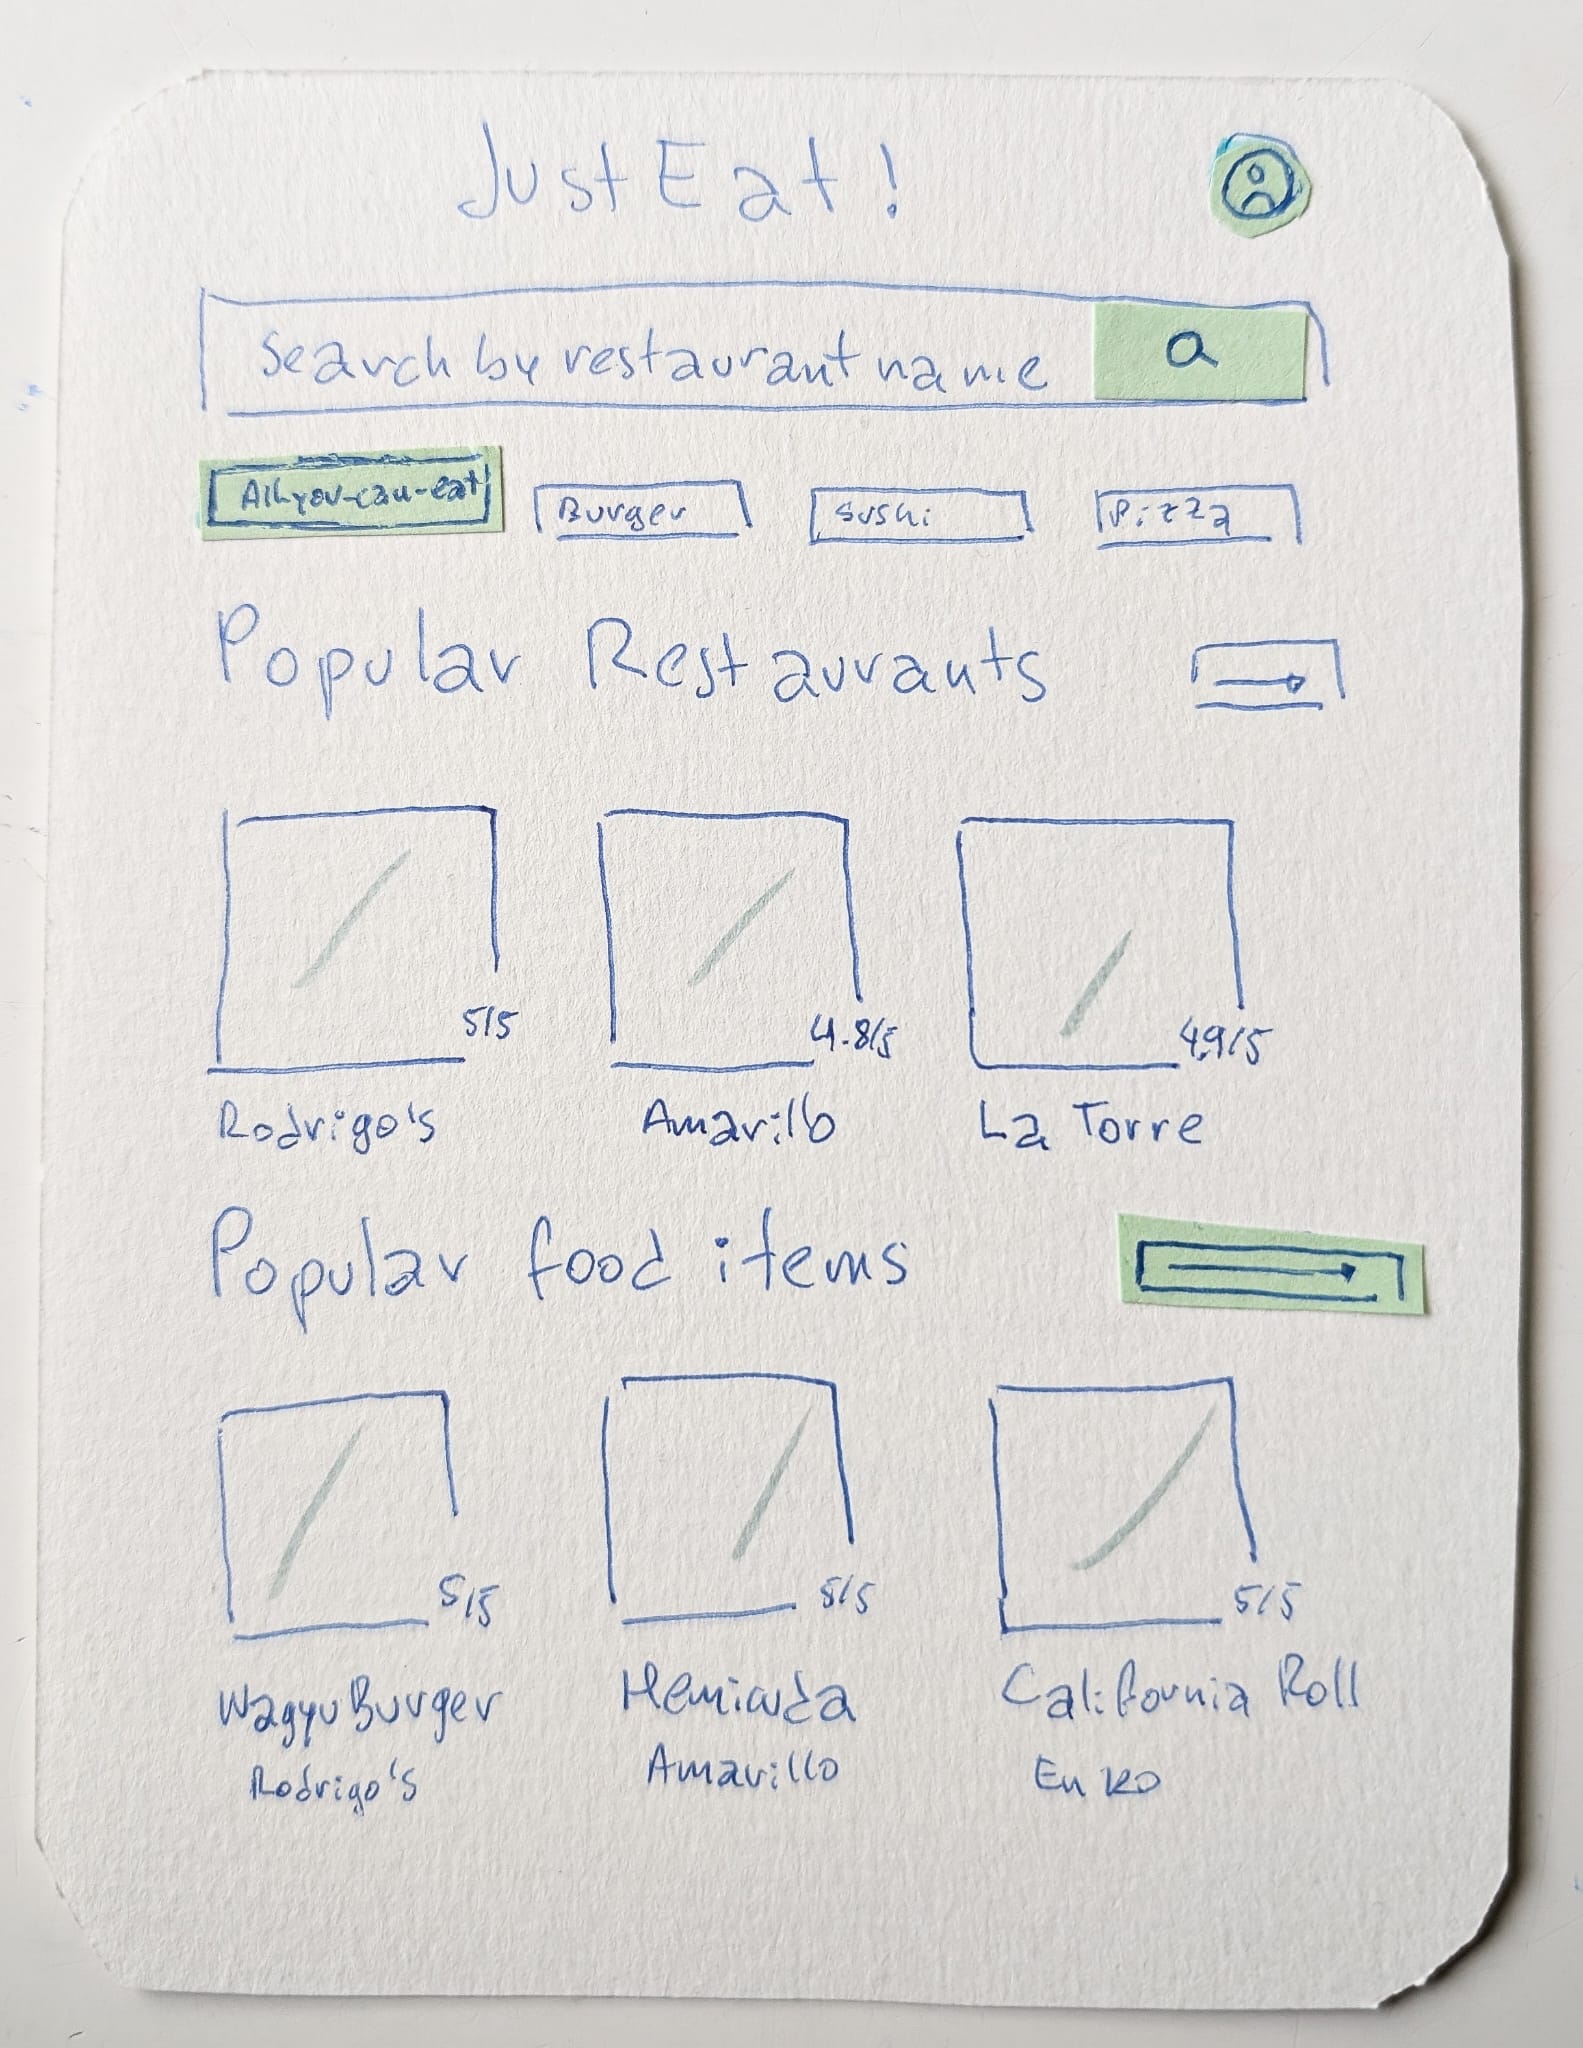 Just Eat!
Search by restaurant name
All-you-can-eat
Burger
Sushi
Pizza
Popular Restaurants
5/5
4.8/5
4.9/5
Rodrigo's
Amarillo
La Torre
Popular food items
5/5
5/5
5/5
Wagyu Burger
California Roll
Rodrigo's
Amarillo
Enko